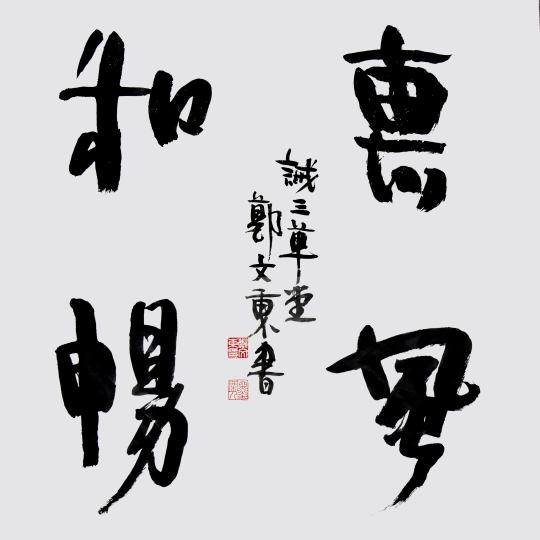 惠風
和暢
誠三草堂
鄭文東書